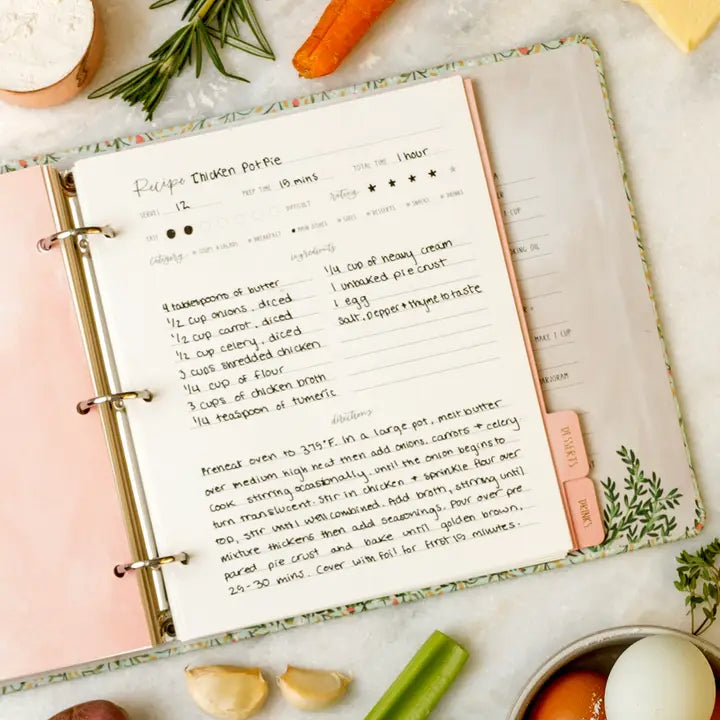 Recipe Chicken Pot Pie
SERVES 12 PREP TIME 15 mins TOTAL TIME 1 hour
EASY DIFFICULT rating ★ ★ ★ ★ ★
category SOUPS & SALADS BREAKFAST MAIN DISHES SIDES DESSERTS SNACKS DRINKS
ingredients
4 tablespoons of butter
1/2 cup onions, diced
1/2 cup carrot, diced
1/2 cup celery, diced
3 cups shredded chicken
1/4 cup of flour
3 cups of chicken broth
1/4 teaspoon of tumeric
1/4 cup of heavy cream
1 unbaked pie crust
1 egg
salt, pepper + thyme to taste
directions
Preheat oven to 375°F. In a large pot, melt butter
over medium high heat then add onions, carrots + celery.
Cook stirring ocasionally, until the onion begins to
turn translucent. Stir in chicken + sprinkle flour over
top, stir until well combined. Add broth, stirring until
mixture thickens then add seasonings. Pour over pre
pared pie crust and bake until golden brown,
25-30 mins. Cover with foil for first 15 minutes.
CUP
KING OIL
MAKE 1 CUP
DESSERTS
DRINKS